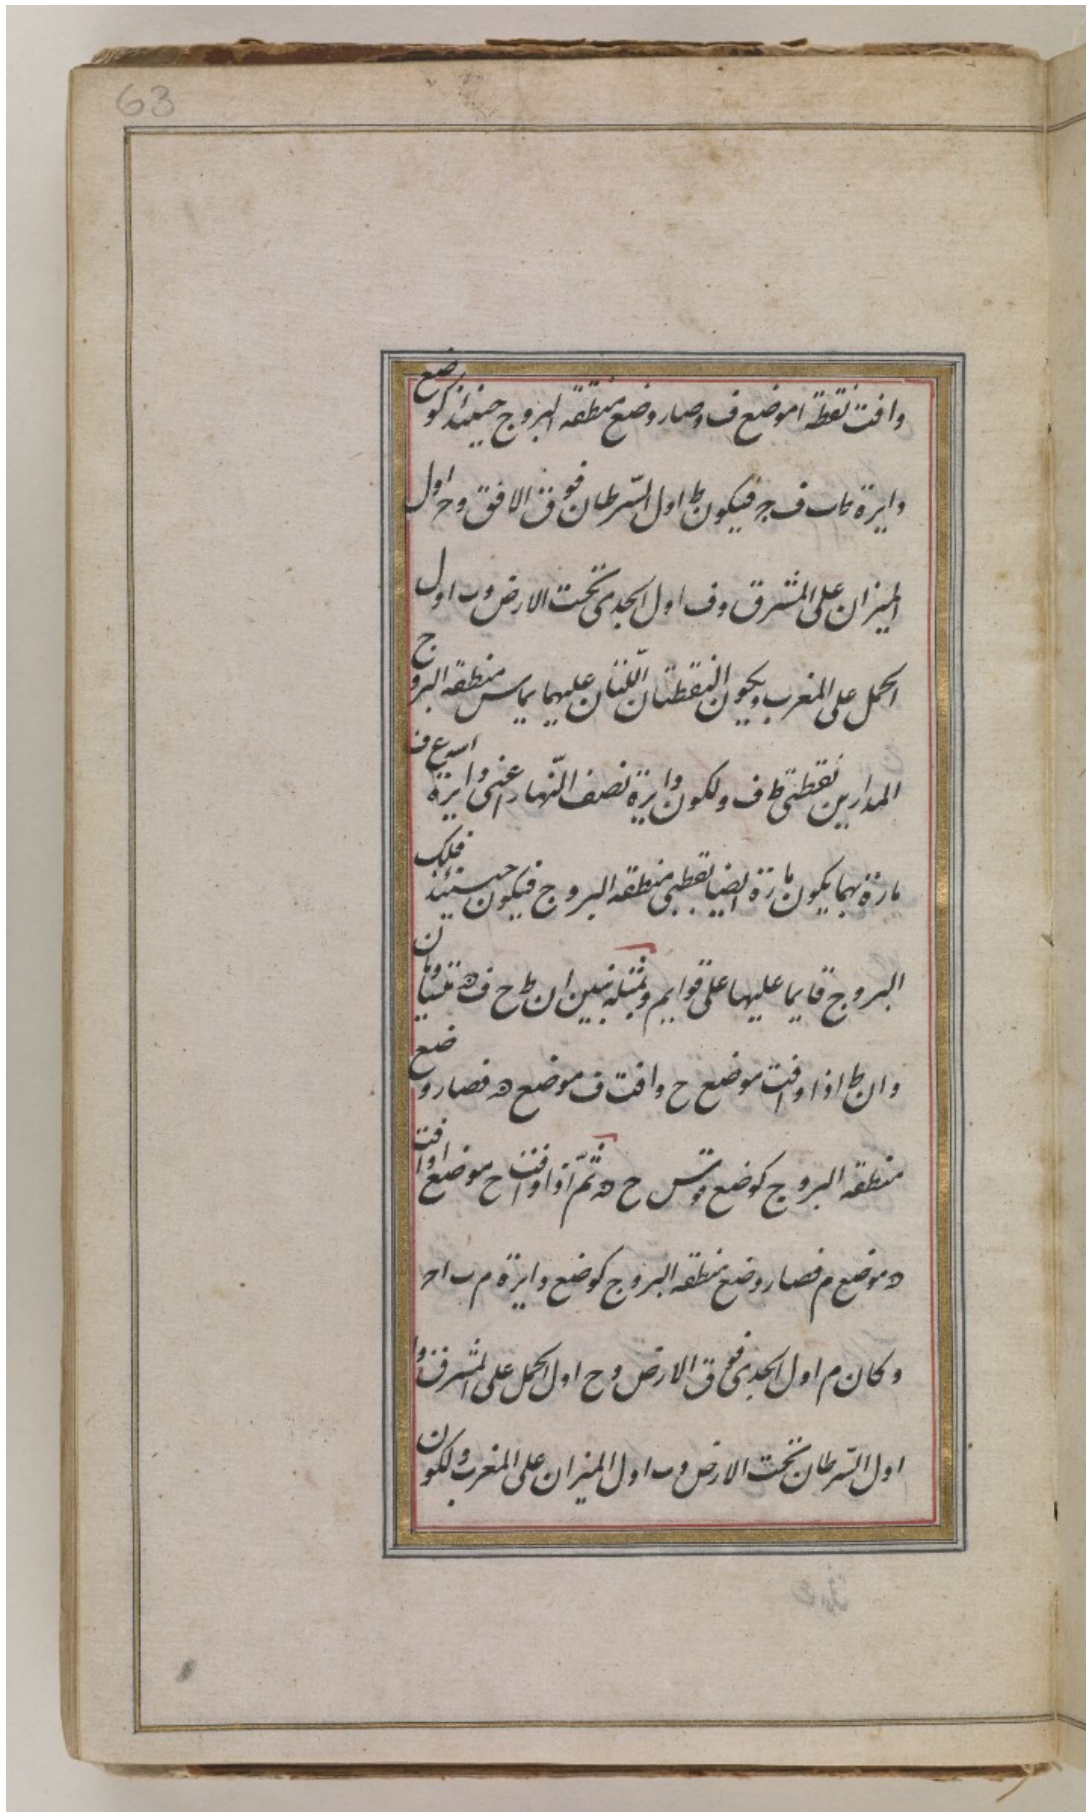 63
وافت نقطة ا موضع ف وصار وضع منطقه البروج حينئذ كوضع
دايرة ط ب ف ج فيكون ط اول السّرطان فوق الافق و ج اول
الميزان على المشرق وف اول الجدى تحت الارض و ب اول
الحمل على المغرب ويكون النقطتان اللّتان عليهما يماس منطقه البروج
المدارين نقطتى ط ف ولكون دايرة نصف النّهار اعنى دايرة
مارّة بهما يكون مارّة ايضا بقطبى منطقه البروج فيكون حينئذ فلك
البروج قايما عليها على قوايم وبمثله نبين ان ط ح ف ه متساويان
وان ط اذا وافت موضع ح وافت ف موضع ه فصار وضع
منطقه البروج كوضع قوس ح ه ثمّ اذا وافت ح موضع ا وافت
ه موضع م فصار وضع منطقه البروج كوضع دايرة م ب ا ج
وكان م اول الجدى فوق الارض و ج اول الحمل على المشرق و ا
اول السّرطان تحت الارض و ب اول الميزان على المغرب ولكون